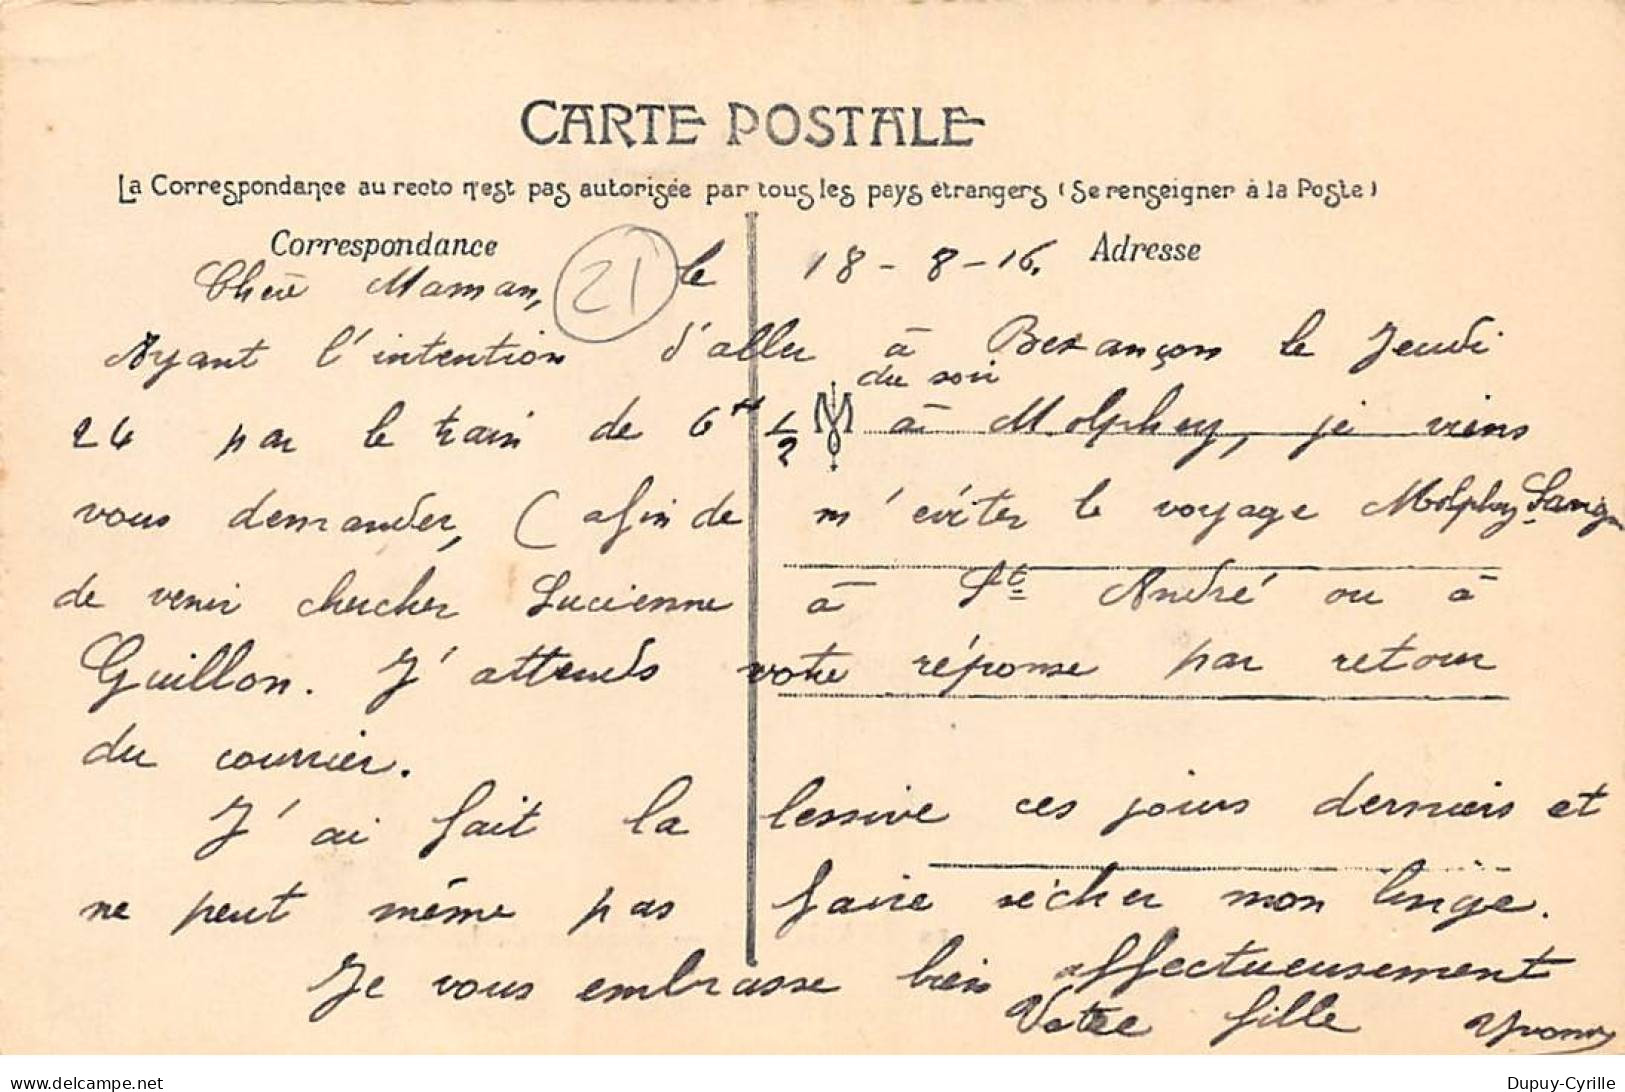 CARTE POSTALE
La Correspondance au recto n'est pas autorisée par tous les pays étrangers (Se renseigner à la Poste)
Correspondance
Adresse
21
Chère Maman, le 18-8-16.
Ayant l'intention d'aller à Besançon le Jeudi
du soir
24 par le train de 6H 1/2 à Molphey, je viens
vous demander, (afin de m'éviter le voyage Molphey
de venir chercher Lucienne à St André ou à
Guillon. J'attends votre réponse par retour
du courrier.
J'ai fait la lessive ces jours derniers et
ne peut même pas faire sécher mon linge.
Je vous embrasse bien affectueusement
Votre fille Yvonne
www.delcampe.net
Dupuy-Cyrille